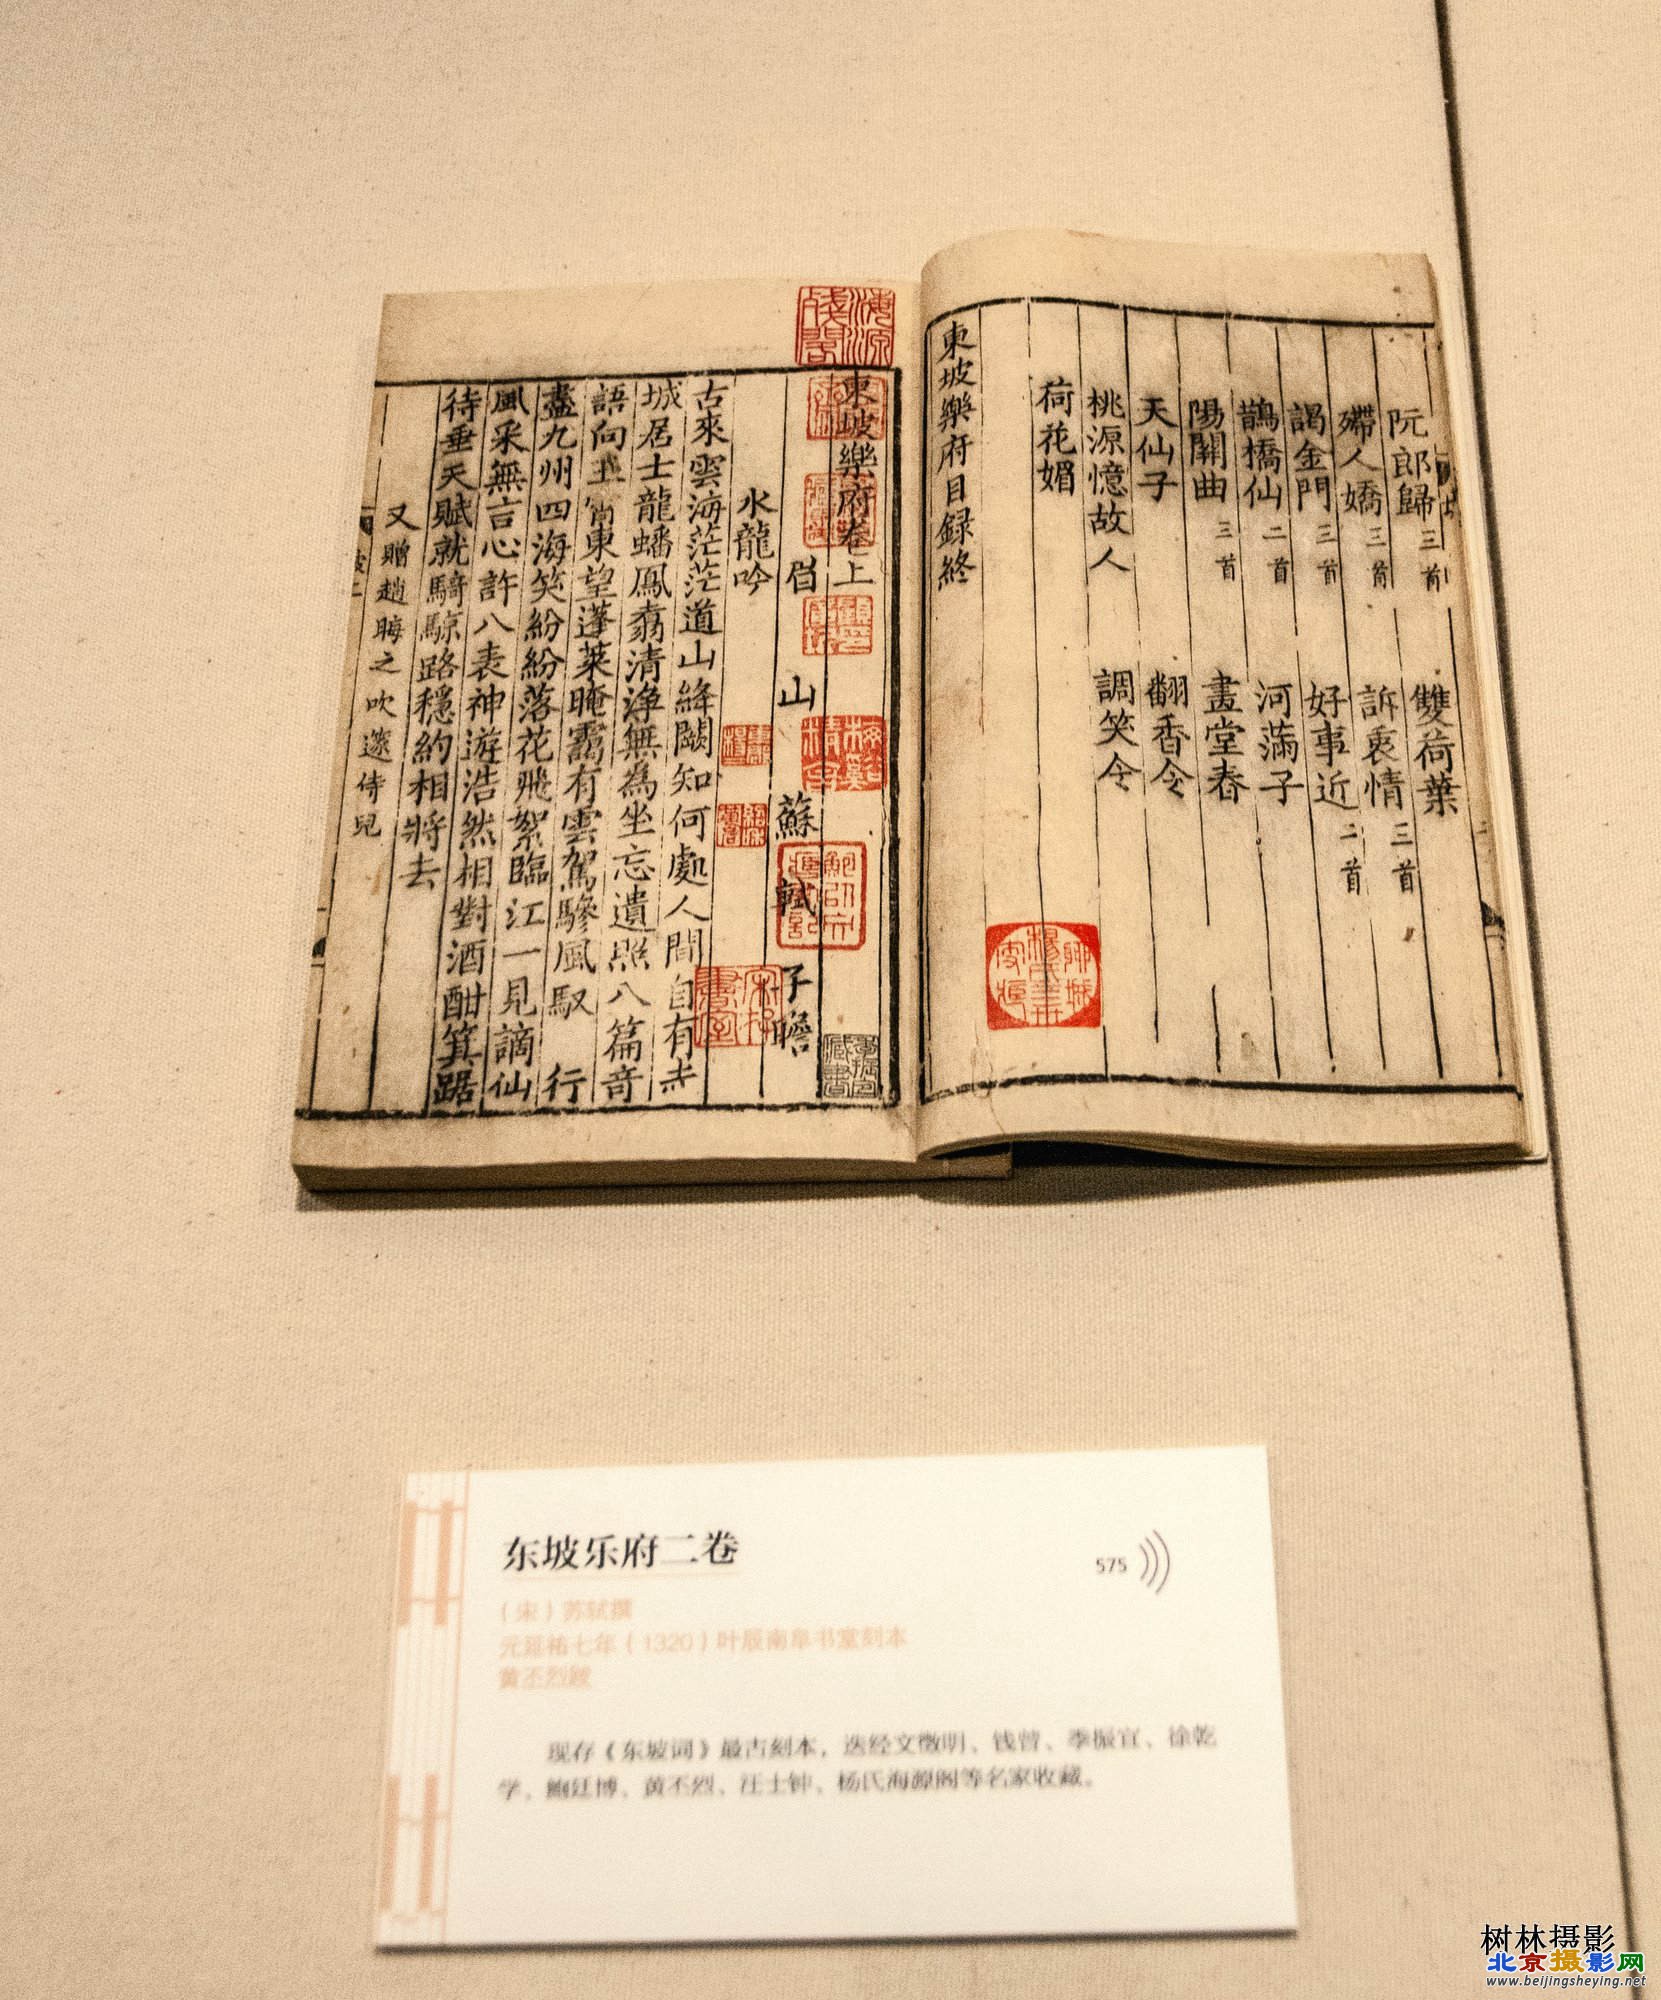 阮郎歸三首 雙荷葉
殢人嬌三首 訴衷情三首
謁金門三首 好事近二首
鵲橋仙二首 河滿子
陽關曲三首 畫堂春
天仙子 翻香令
桃源憶故人 調笑令
荷花媚
東坡樂府目録終
東坡樂府卷上
眉山蘇軾子瞻
水龍吟
古來雲海茫茫道山絳闕知何處人間自有赤
城居士龍蟠鳳翥清淨無為坐忘遺照八篇奇
語向玉霄東望蓬萊晻靄有雲駕驂風馭行
盡九州四海笑紛紛落花飛絮臨江一見謫仙
風采無言心許八表神遊浩然相對酒酣箕踞
待垂天賦就騎鯨路穩約相將去
又贈趙晦之吹邃侍兒
海源殘閣
东坡乐府二卷
575
（宋）苏轼撰
元延祐七年（1320）叶辰南阜书堂刻本
黄丕烈跋
现存《东坡词》最古刻本，迭经文徵明、钱曾、季振宜、徐乾
学、鲍廷博、黄丕烈、汪士钟、杨氏海源阁等名家收藏。
树林摄影
北京摄影网
www.beijingsheying.net